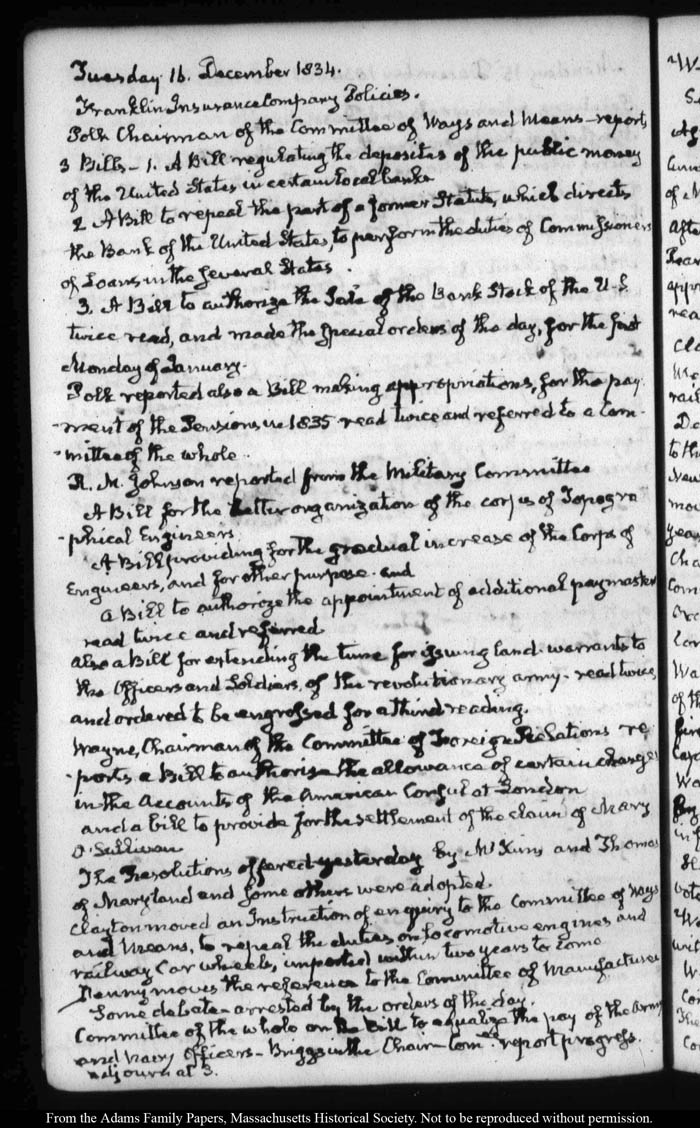 Tuesday 16. December 1834.
Franklin Insurance Company Policies.
Polk Chairman of the Committee of Ways and Means - reports
3 Bills - 1. A Bill regulating the deposites of the public money
of the United States in certain local banks
2 A Bill to repeal the part of a former Statute, which directs
the Bank of the United States, to perform the duties of Commissioners
of Loans in the several States.
3. A Bill to authorize the Sale of the Bank Stock of the U.S.
twice read, and made the special orders of the day, for the first
Monday of January.
Polk reported also a Bill making appropriations, for the pay-
-ment of the Pensions in 1835 read twice and referred to a Com-
-mittee of the whole.
R. M. Johnson reported from the Military Committee
A Bill for the better organization of the corps of Topogra
-phical Engineers
A Bill providing for the gradual increase of the Corps of
Engineers, and for other purpose. and
a Bill to authorize the appointment of additional paymaster
read twice and referred
also a Bill for extending the time for issuing land-warrants to
the Officers and Soldiers, of the revolutionary army - read twice
and ordered to be engrossed for a third reading.
Wayne, Chairman of the Committee of Foreign Relations re
-ports, a Bill to authorise the allowance of certain charges
in the Accounts of the American Consul at London
and a bill to provide for the settlement of the claim of Mary
O'Sullivan
The Resolutions offered yesterday by McKim and Thomas
of Maryland and some others were adopted.
Clayton moved an Instruction of enquiry to the Committee of Ways
and Means, to repeal the duties on locomotive engines and
railway Car wheels, imported within two years to come
Denny moves the reference to the Committee of Manufactures
Some debate - arrested by the orders of the day.
Committee of the whole on the Bill to equalize the pay of the Army
and Navy Officers - Briggs in the Chair - Comee. report progress.
adjourn at 3.
From the Adams Family Papers, Massachusetts Historical Society. Not to be reproduced without permission.